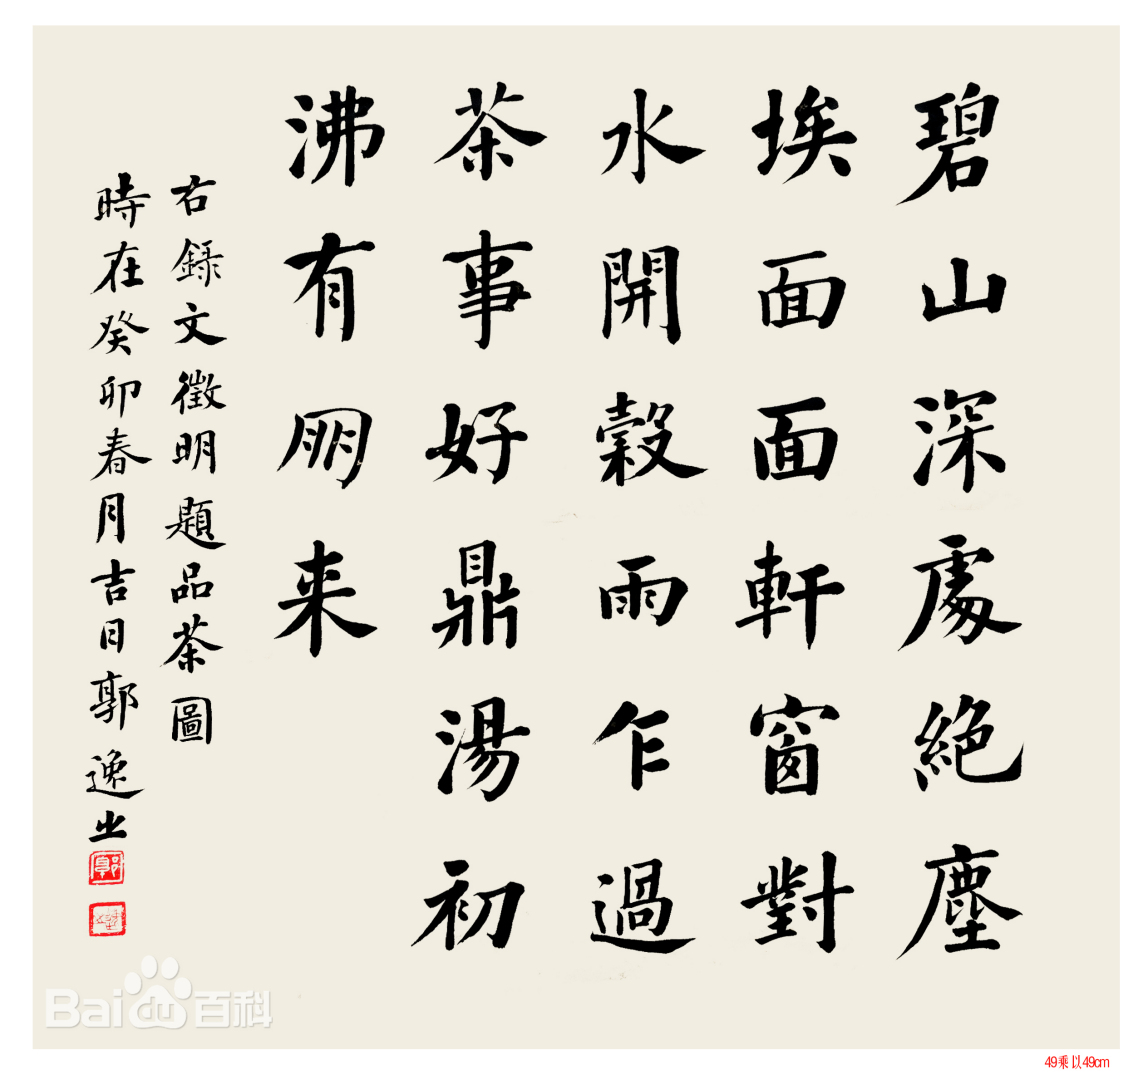 碧山深處絶塵
埃面面軒窗對
水開穀雨乍過
茶事好鼎湯初
沸有朋来
右録文徵明題品茶圖
時在癸卯春月吉日郭逸之
Bai du 百科
49乘以49cm